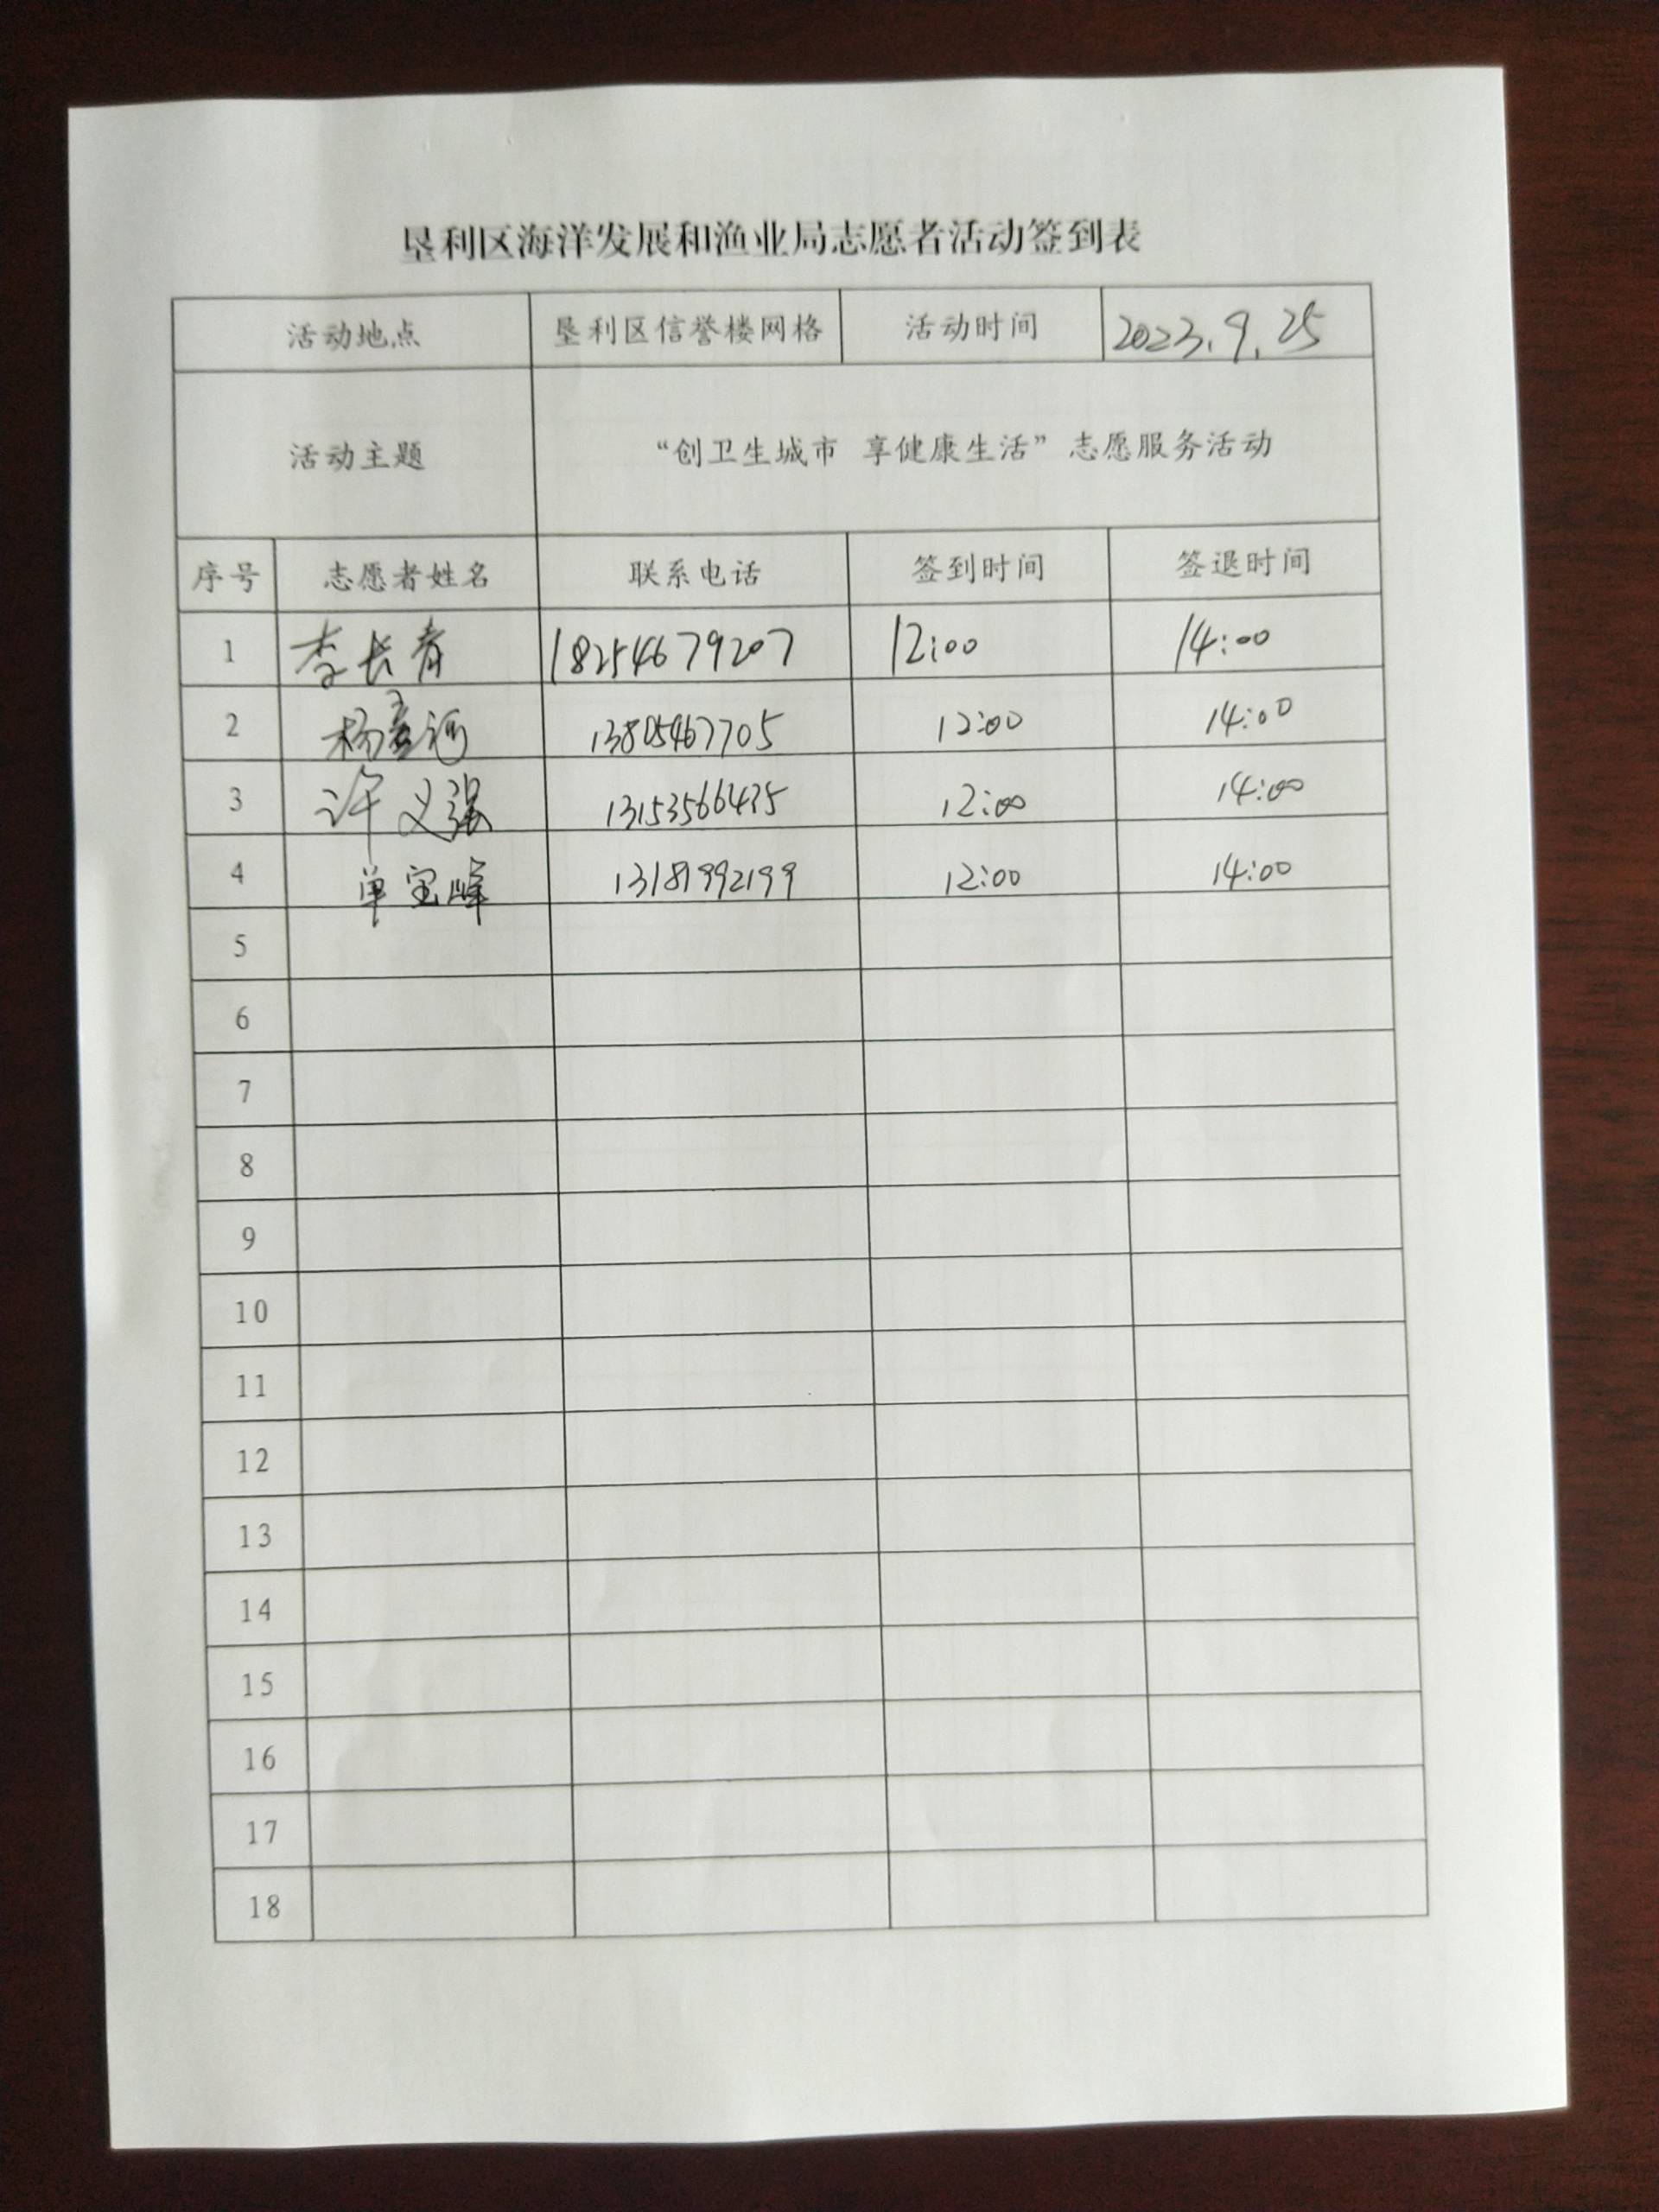 垦利区海洋发展和渔业局志愿者活动签到表
活动地点 垦利区信誉楼网格 活动时间 2023.9.25
活动主题 “创卫生城市 享健康生活”志愿服务活动
序号 志愿者姓名 联系电话 签到时间 签退时间
1 李长青 18254679207 12:00 14:00
2 杨 13805467705 12:00 14:00
3 许义强 13153566435 12:00 14:00
4 单宝峰 13181992199 12:00 14:00
5
6
7
8
9
10
11
12
13
14
15
16
17
18